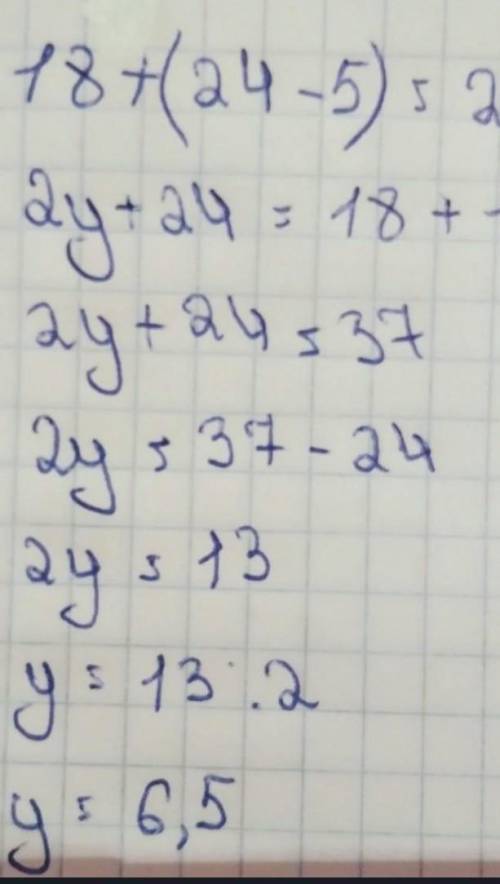 18+(24-5)=2
2y+24=18+
2y+24=37
2y=37-24
2y=13
y=13:2
y=6,5